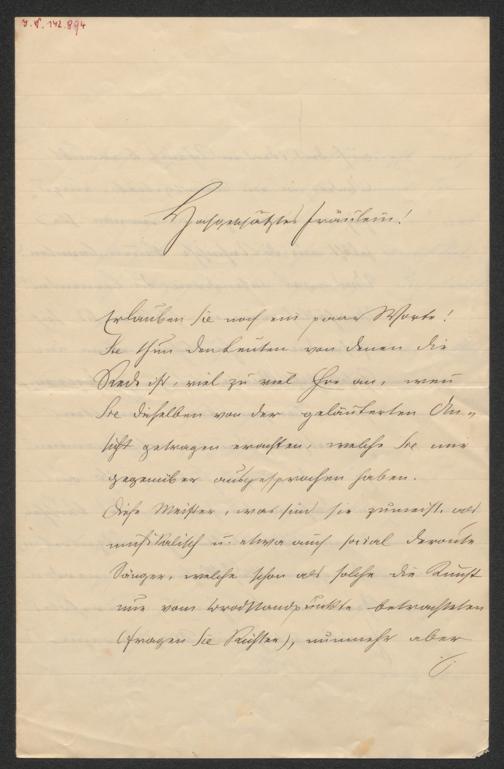 I.N. 142.894
Hochgeschätztes Fräulein!
Erlauben Sie noch ein paar Worte!
Sie thun den Leuten von denen die
Rede ist, viel zu viel Ehre an, wenn
Sie dieselben von der geläuterten An„
sicht getragen erachten, welche Sie mir
gegenüber ausgesprochen haben.
Diese Meister, was sind sie zumeist, als
musikalisch u. etwa auch social deroute
Sänger, welche schon als solche die Kunst
nur vom Brodstandpunkte betrachteten
(fragen Sie Richter), nunmehr aber